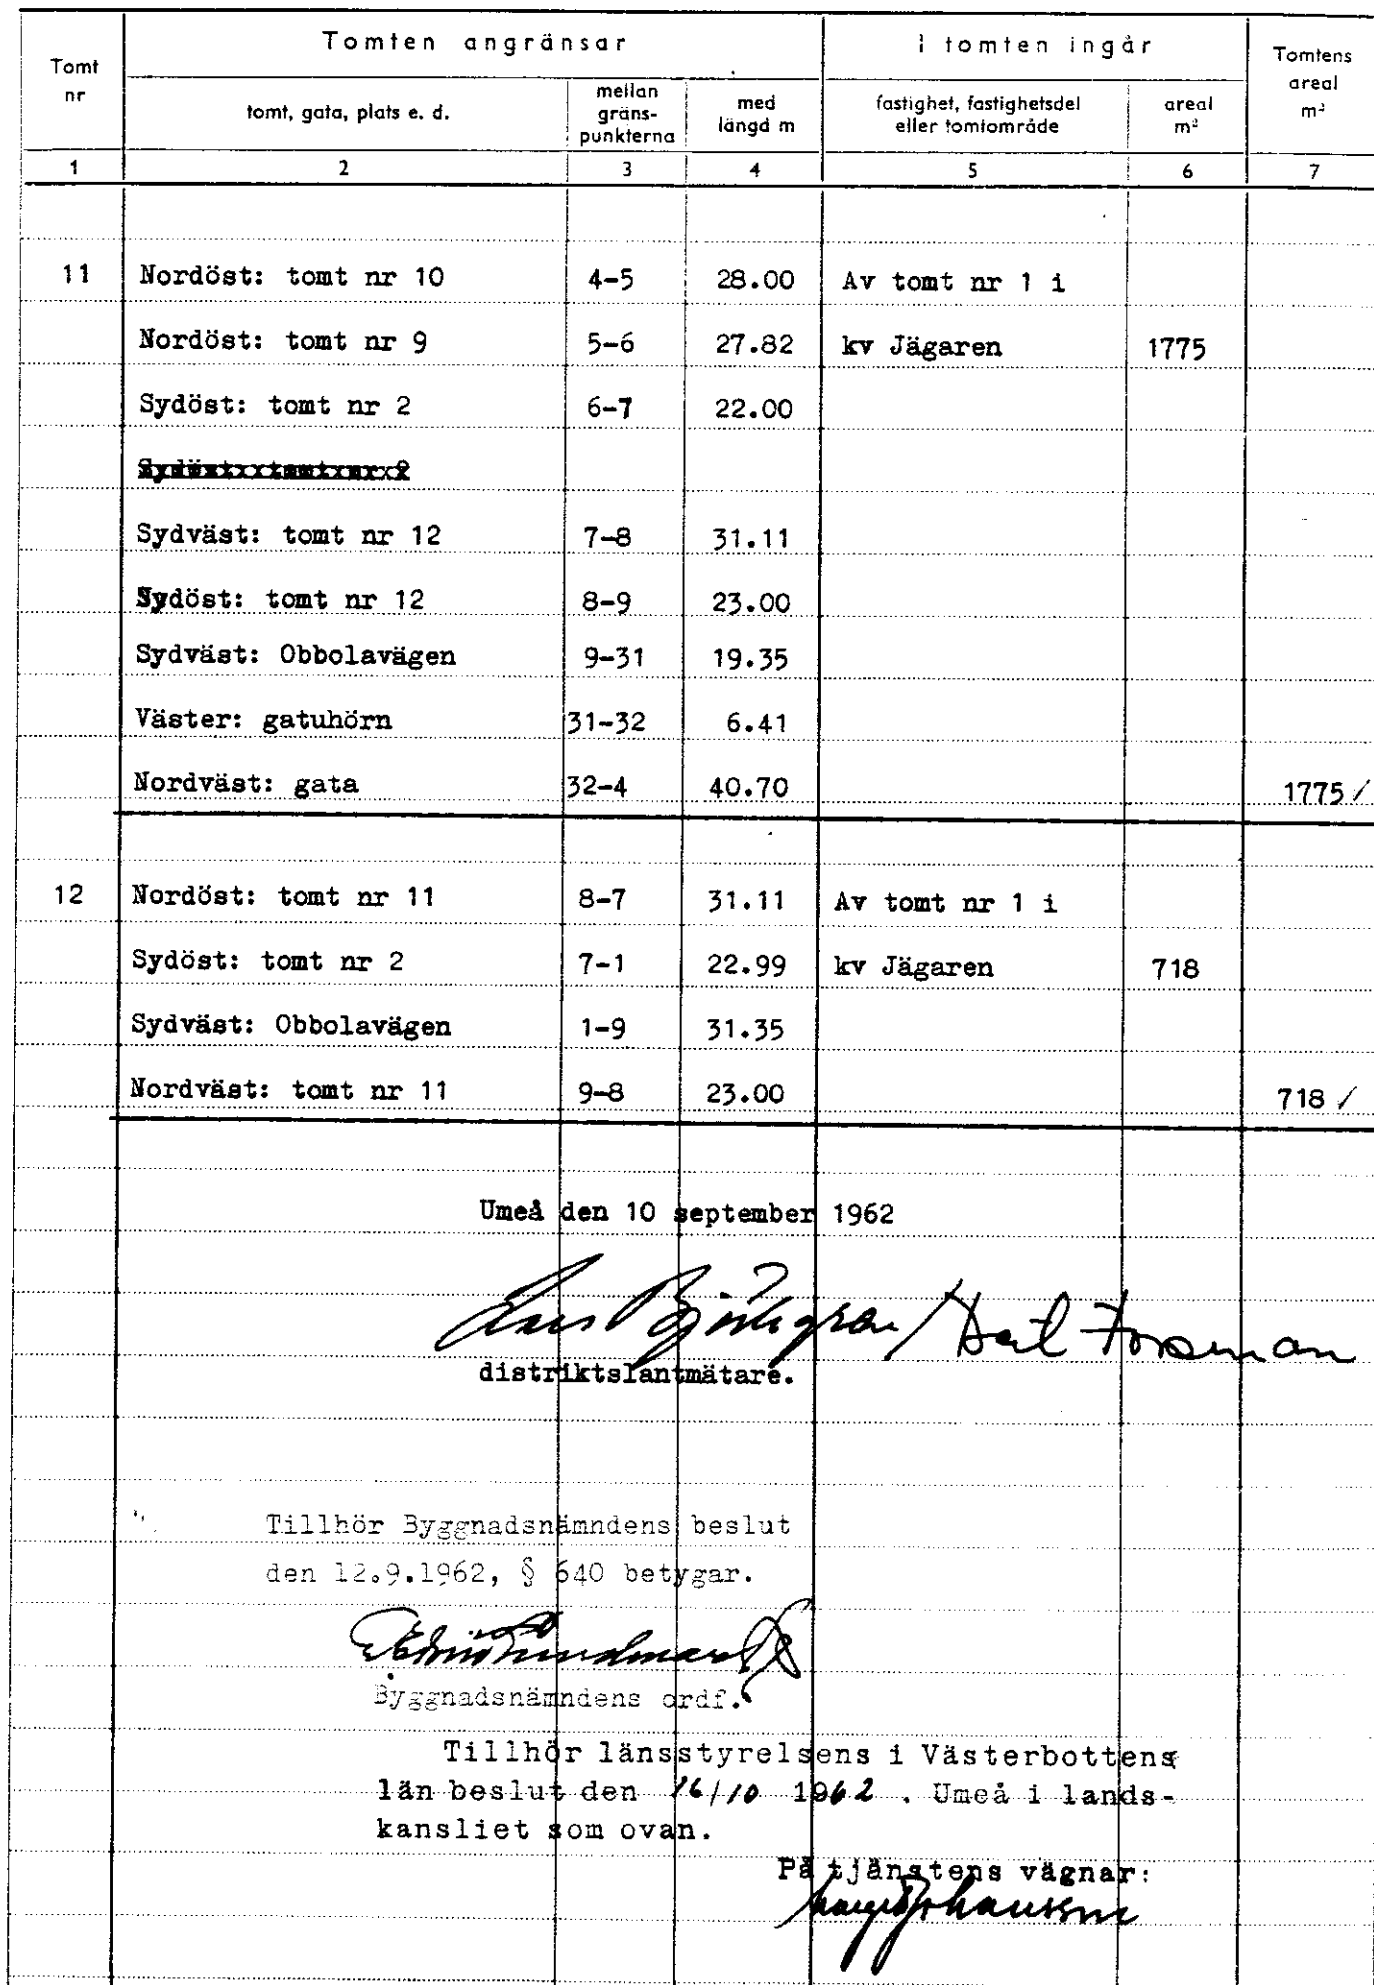 Tomt nr
Tomten angränsar
I tomten ingår
Tomtens areal m²
tomt, gata, plats e. d.
mellan gräns-punkterna
med längd m
fastighet, fastighetsdel eller tomtområde
areal m²
1 2 3 4 5 6 7
11 Nordöst: tomt nr 10 4-5 28.00 Av tomt nr 1 i
Nordöst: tomt nr 9 5-6 27.82 kv Jägaren 1775
Sydöst: tomt nr 2 6-7 22.00
Sydväst: tomt nr 12 7-8 31.11
Sydöst: tomt nr 12 8-9 23.00
Sydväst: Obbolavägen 9-31 19.35
Väster: gatuhörn 31-32 6.41
Nordväst: gata 32-4 40.70 1775 ✓
12 Nordöst: tomt nr 11 8-7 31.11 Av tomt nr 1 i
Sydöst: tomt nr 2 7-1 22.99 kv Jägaren 718
Sydväst: Obbolavägen 1-9 31.35
Nordväst: tomt nr 11 9-8 23.00 718 ✓
Umeå den 10 september 1962
Forsman
distriktslantmätare.
Tillhör Byggnadsnämndens beslut
den 12.9.1962, § 640 betygar.
Byggnadsnämndens ordf.
Tillhör länsstyrelsens i Västerbottens
län beslut den 16/10 1962 . Umeå i lands-
kansliet som ovan.
På tjänstens vägnar: